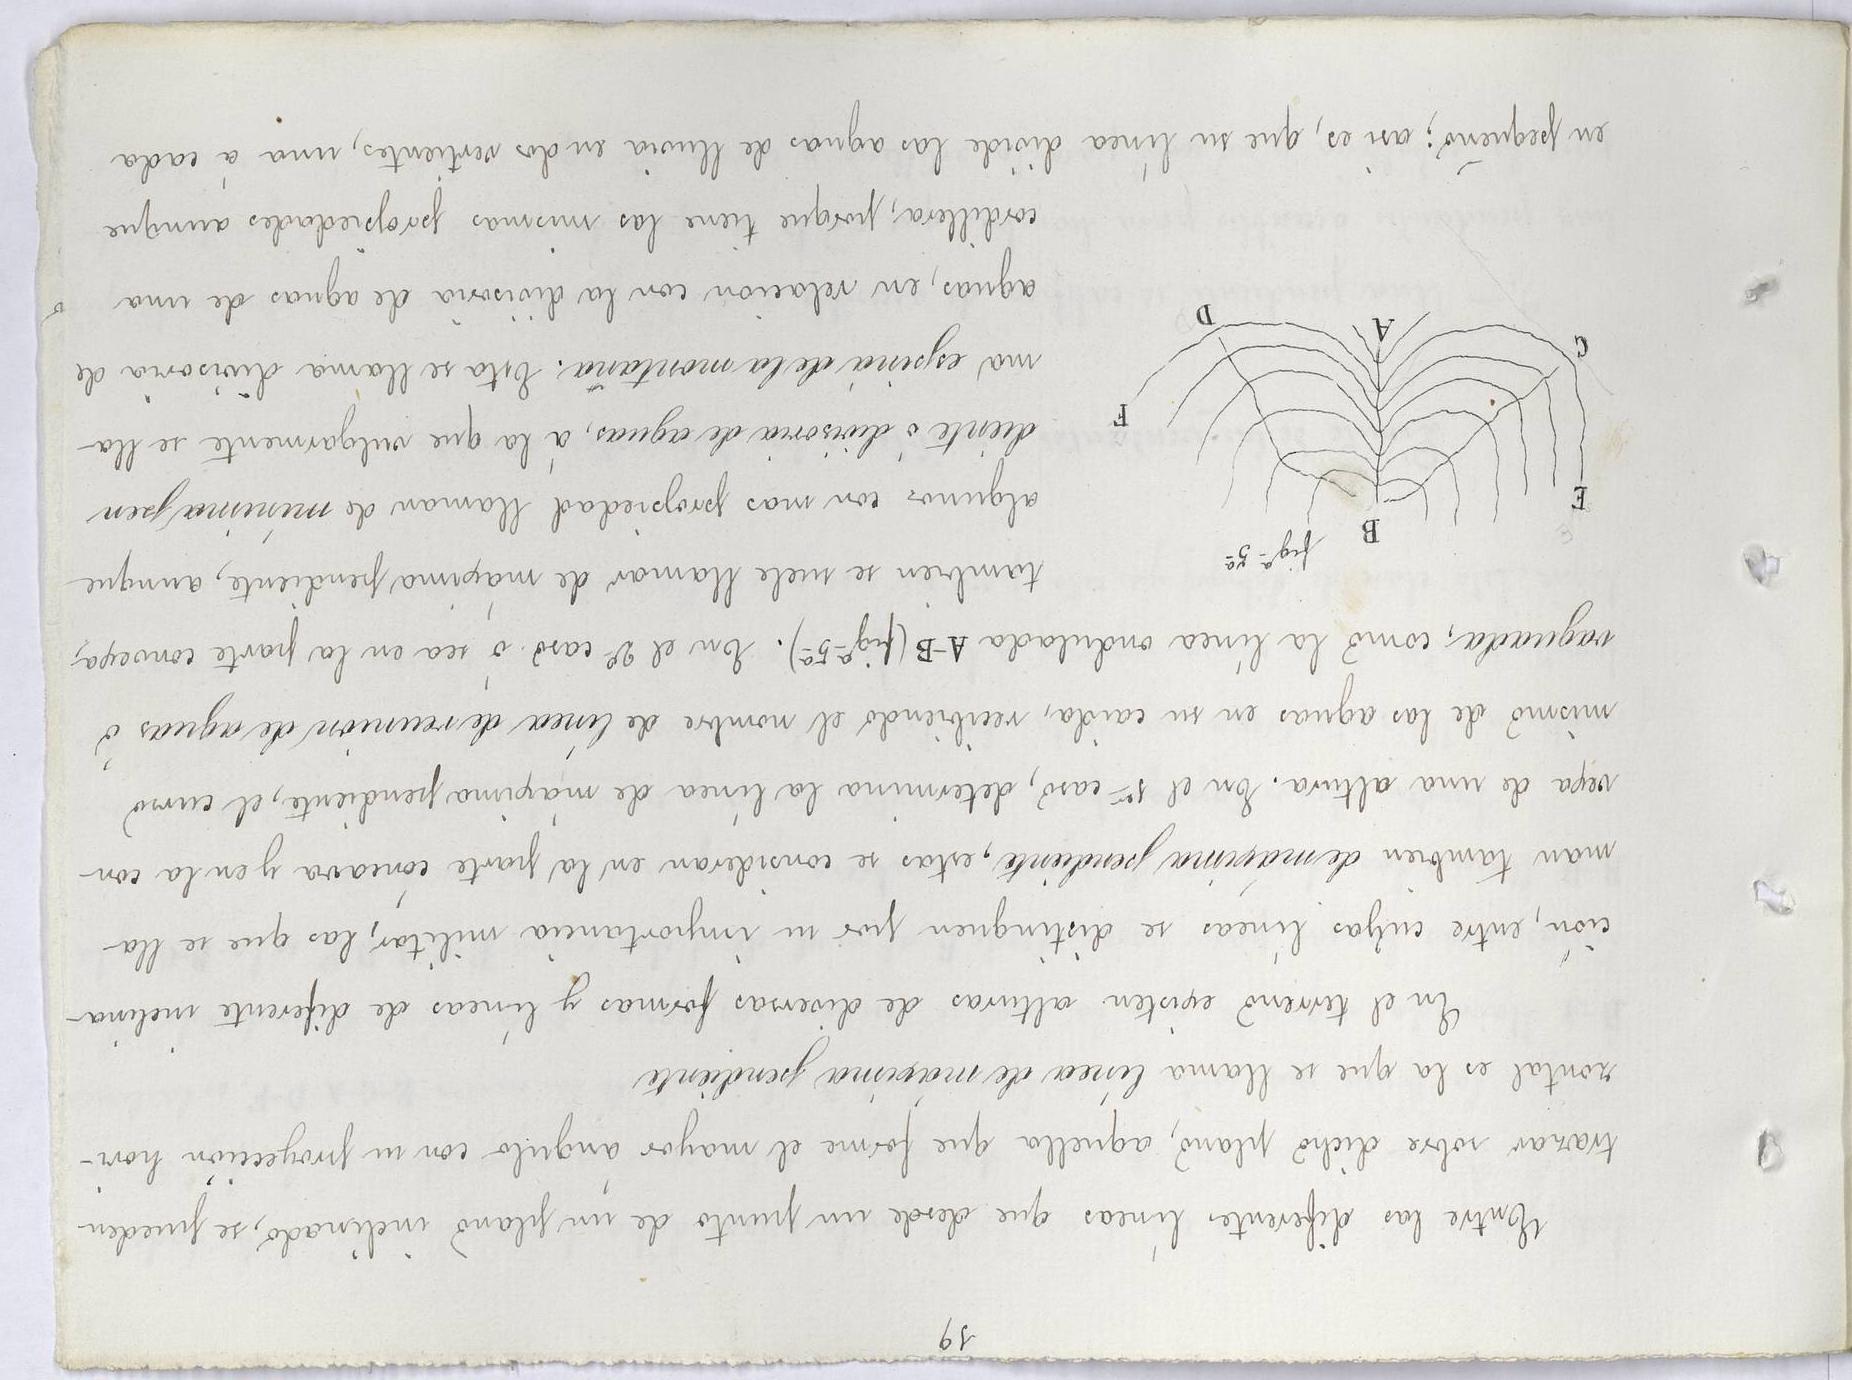 19
Entre las diferentes líneas que desde un punto de un plano inclinado, se pueden
trazar sobre dicho plano, aquella que forme el mayor angulo con su proyección hori-
zontal es la que se llama línea de máxima pendiente
En el terreno existen alturas de diversas formas y líneas de diferente inclina-
ción, entre cuyas líneas se distinguen por su importancia militar, las que se lla-
man tambien de máxima pendiente, estas se consideran en la parte cóncava y en la con-
vexa de una altura. En el 1er caso, determina la línea de máxima pendiente, el curso
mismo de las aguas en su caida, recibiendo el nombre de línea de reunión de aguas ó
vaguada, como la línea ondulada A-B (figª 5ª). En el 2º caso ó sea en la parte convexa,
tambien se suele llamar de máxima pendiente, aunque
algunos con mas propiedad llaman de mínima pen
diente ó divisoria de aguas, á la que vulgarmente se lla-
ma espina de la montaña. Esta se llama divisoria de
aguas, en relación con la divisoria de aguas de una
cordillera, porque tiene las mismas propiedades aunque
en pequeño; asi es, que su línea divide las aguas de lluvia en dos vertientes, una á cada
figª 5ª
B
E
F
C
A
D